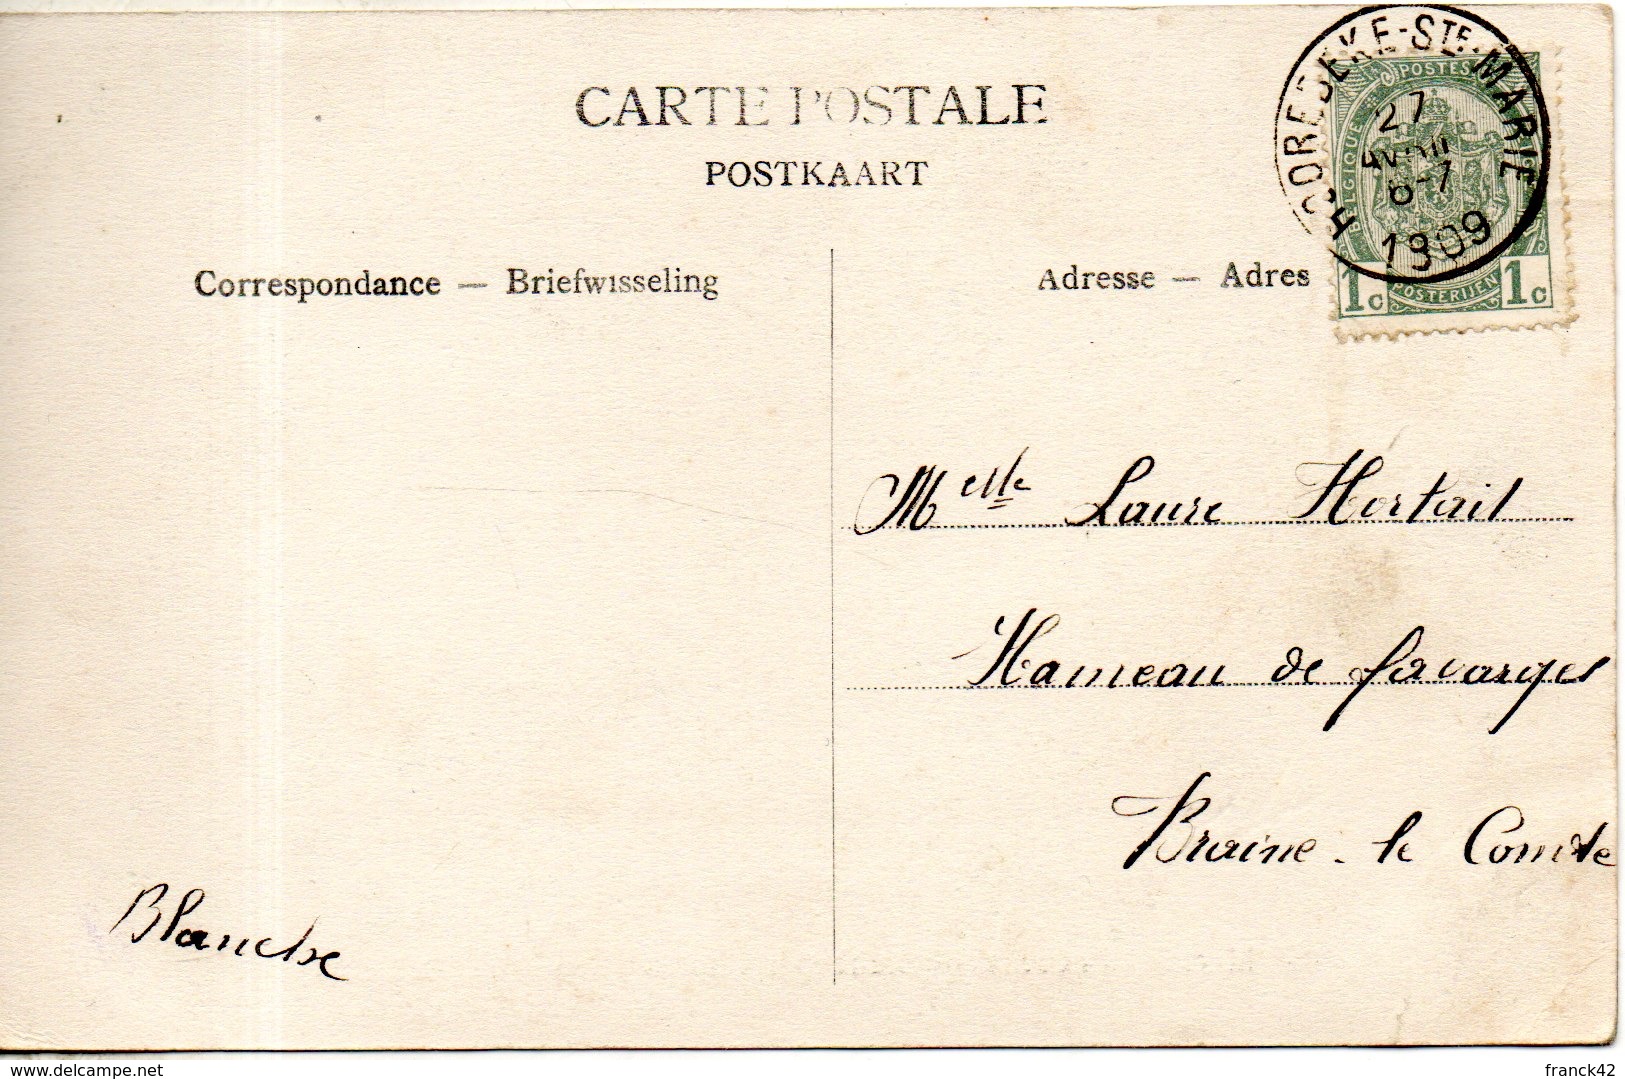 CARTE POSTALE
POSTKAART
Correspondance — Briefwisseling
Adresse — Adres
HOOREBEKE-STE-MARIE
27
AVRIL
6-7
1909
POSTES
BELGIQUE
1c POSTERIJEN 1c
Melle Laure Hortait
Hameau de favarges
Braine-le Comte
Blanche
delcampe.net
franck42